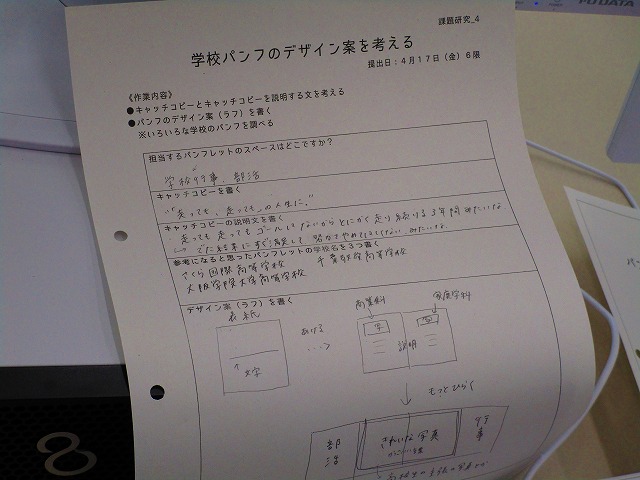 I-O DATA
課題研究_4
学校パンフのデザイン案を考える
提出日：4月17日（金）6限
《作業内容》
●キャッチコピーとキャッチコピーを説明する文を考える
●パンフのデザイン案（ラフ）を書く
※いろいろな学校のパンフを調べる
担当するパンフレットのスペースはどこですか？
学校行事、部活
キャッチコピーを書く
"走っても、走っても、の人生に。"
キャッチコピーの説明文を書く
・走っても走ってもゴールはないからとにかく走り続ける3年間みたいな
参考になると思ったパンフレットの学校名を3つ書く
さくら国際高等学校
大阪学院大学高等学校
デザイン案（ラフ）を書く
表紙
↑
文字
あける
商業科
家庭学科
説明
もっとひらく
部活
きれいな写真
行事